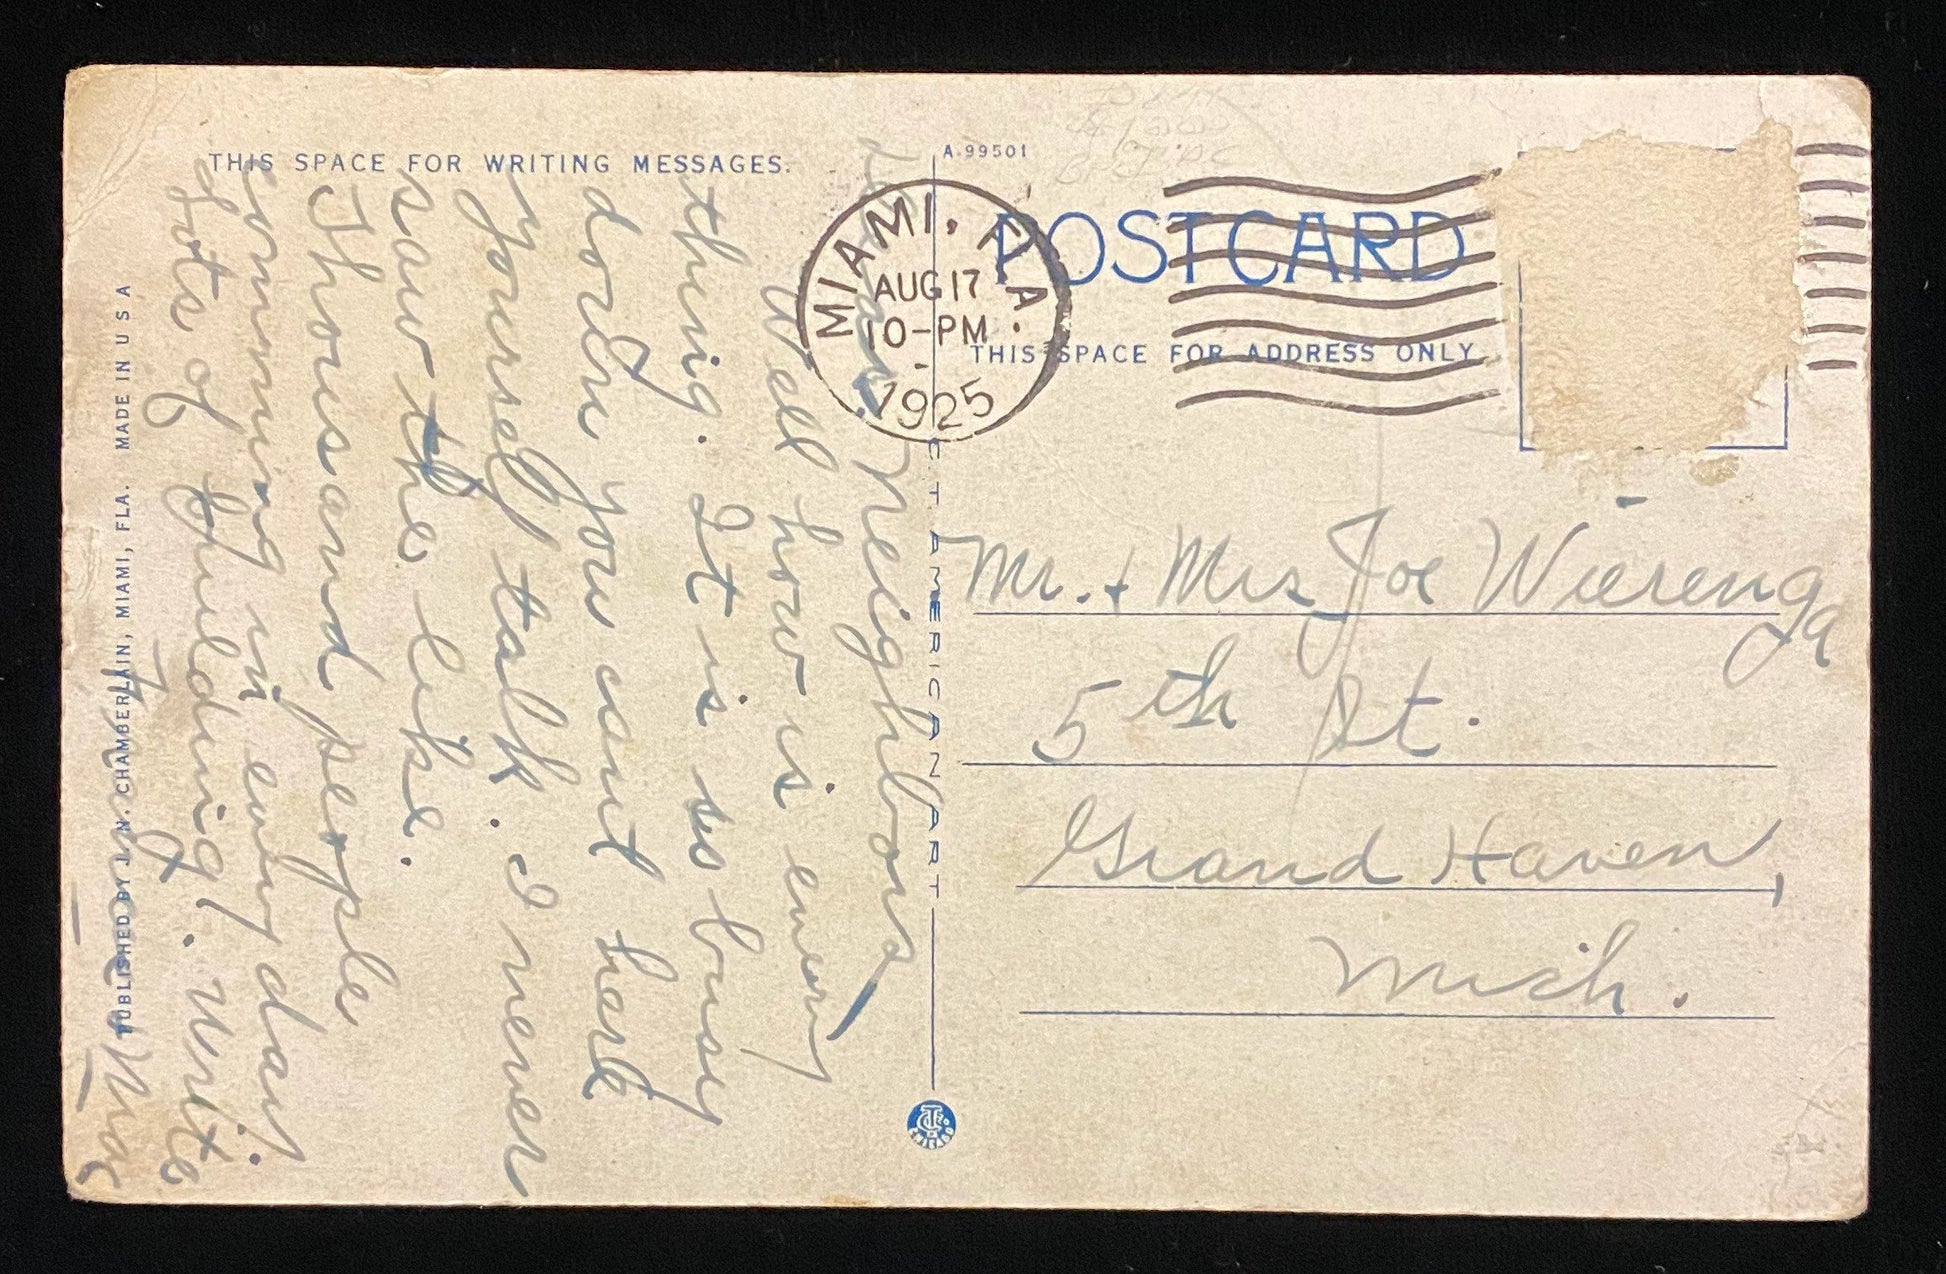 THIS SPACE FOR WRITING MESSAGES.
Dear Neighbors
Well how is every
thing. It is so busy
down you cant hear
yourself talk. I never
saw the like.
Thousand people
comming in every day.
Lots of building. Write
Mac
PUBLISHED BY J. N. CHAMBERLAIN, MIAMI, FLA. MADE IN U S A
A-99501
POSTCARD
THIS SPACE FOR ADDRESS ONLY
MIAMI, FLA.
AUG 17
10-PM
1925
C. T. AMERICAN ART
Mr. + Mrs Joe Wierenga
5th St.
Grand Haven,
Mich.